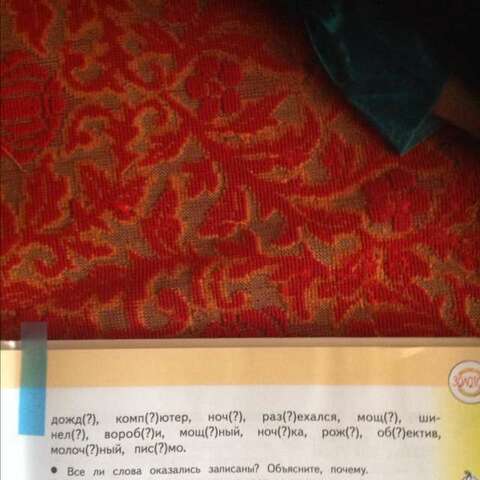 дожд(?), комп(?)ютер, ноч(?), раз(?)ехался, мощ(?), ши-
нел(?), вороб(?)и, мощ(?)ный, ноч(?)ка, рож(?), об(?)ектив,
молоч(?)ный, пис(?)мо.
• Все ли слова оказались записаны? Объясните, почему.